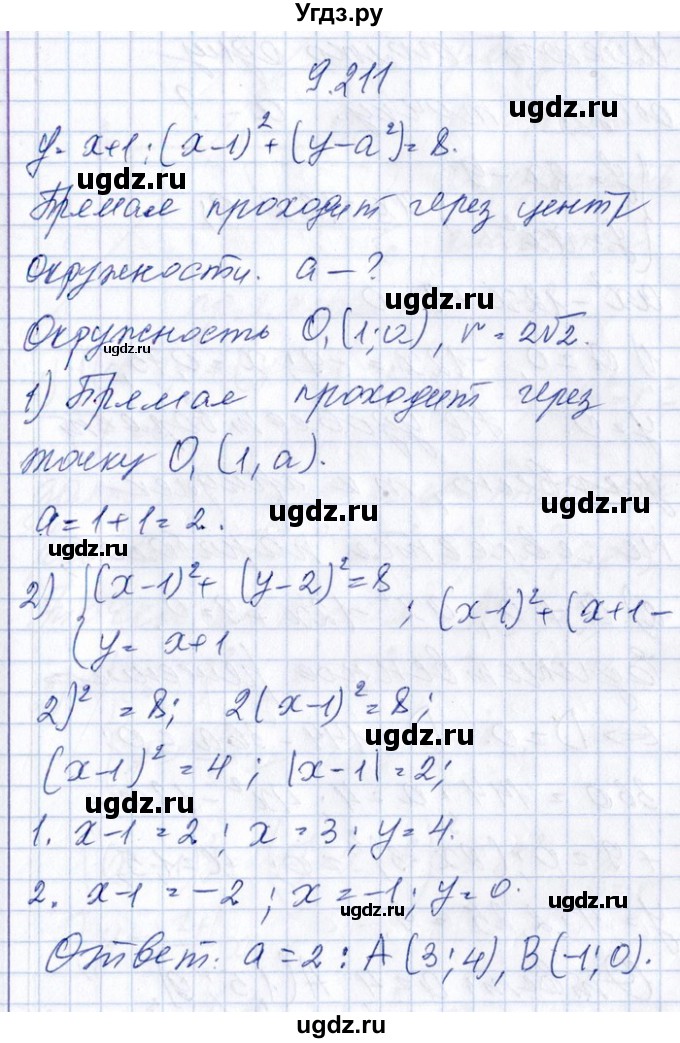 Угдз.ру
9.211
y = x+1; (x-1)² + (y-a²) = 8.
Прямая проходит через центр
окружности. a - ?
Окружность O₁(1; a), r = 2√2.
1) Прямая проходит через
точку O₁(1, a).
a = 1+1 = 2.
2) {(x-1)² + (y-2)² = 8
{y = x+1 ; (x-1)² + (x+1-
2)² = 8; 2(x-1)² = 8;
(x-1)² = 4; |x-1| = 2;
1. x-1 = 2; x = 3; y = 4.
2. x-1 = -2; x = -1; y = 0.
Ответ: a = 2: A(3; 4), B(-1; 0).
ugdz.ru
ugdz.ru
ugdz.ru
ugdz.ru
ugdz.ru
ugdz.ru
ugdz.ru
ugdz.ru
ugdz.ru
ugdz.ru
ugdz.ru
ugdz.ru